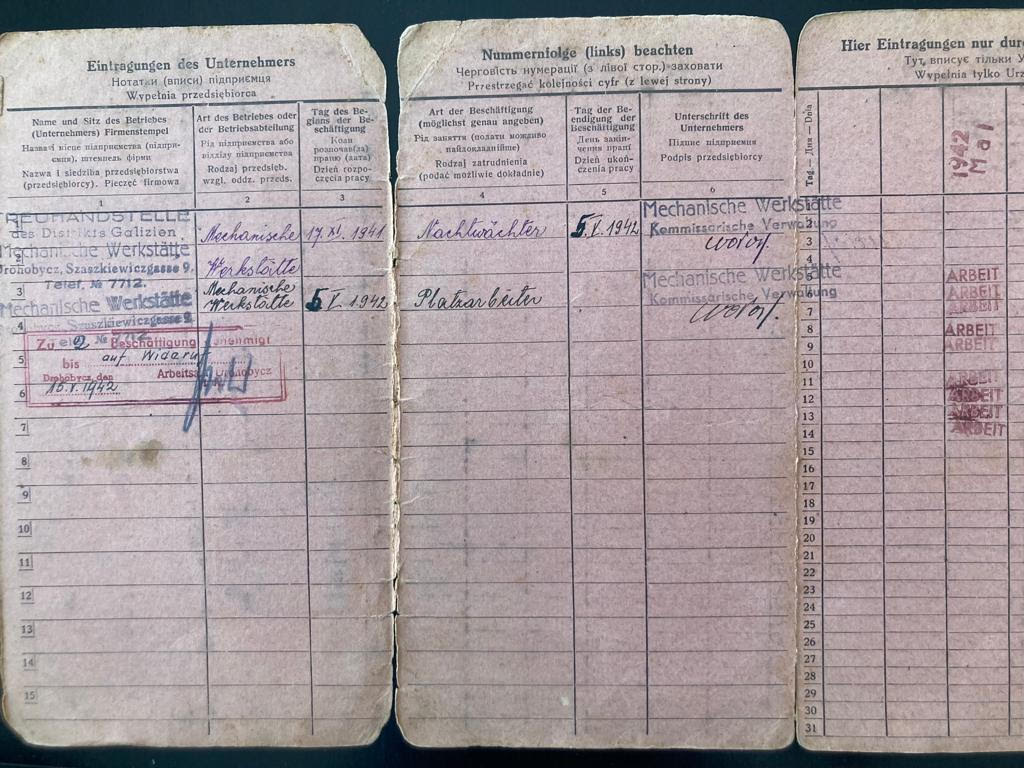 Eintragungen des Unternehmers
Нотатки (вписи) підприємця
Wypełnia przedsiębiorca
Name und Sitz des Betriebes
(Unternehmers) Firmenstempel
Назва і місце підприємства (підпри-
ємця), штемпель фірми
Nazwa i siedziba przedsiębiorstwa
(przedsiębiorcy). Pieczęć firmowa
1
Art des Betriebes oder
der Betriebsabteilung
Рід підприємства або
відділу підприємства
Rodzaj przedsięb.
wzgl. oddz. przeds.
2
Tag des Be-
ginns der Be-
schäftigung
Коли
розпочав(ла)
працю (дата)
Dzień rozpo-
częcia pracy
3
TREUHANDSTELLE
des Distrikts Galizien
Mechanische Werkstätte
Drohobycz, Szaszkiewiczgasse 9.
Telef. № 7712.
Mechanische
Werkstätte
17 XI. 1941
Mechanische Werkstätte
Szaszkiewiczgasse 9
Mechanische
Werkstätte
5 V. 1942
Zu 2 Beschäftigung genehmigt
bis auf Widaruf
Drohobycz, den Arbeitsamt Drohobycz
15.V.1942
3
4
5
6
7
8
9
10
11
12
13
14
15
Nummernfolge (links) beachten
Черговість нумерації (з лівої стор.) заховати
Przestrzegać kolejności cyfr (z lewej strony)
Art der Beschäftigung
(möglichst genau angeben)
Рід заняття (подати можливо
найдокладнійше)
Rodzaj zatrudnienia
(podać możliwie dokładnie)
4
Tag der Be-
endigung der
Beschäftigung
День закін-
чення праці
Dzień ukoń-
czenia pracy
5
Unterschrift des
Unternehmers
Підпис підприємця
Podpis przedsiębiorcy
6
Nachtwächter
5.V.1942
Mechanische Werkstätte
Kommissarische Verwaltung
Platzarbeiter
Mechanische Werkstätte
Kommissarische Verwaltung
Hier Eintragungen nur
Тут, вписує тільки
Wypełnia tylko
Tag — Дня — Dnia
1942
Mai
2
3
4
5
6
7
8
9
10
11
12
13
14
15
16
17
18
19
20
21
22
23
24
25
26
27
28
29
30
31
ARBEIT
ARBEIT
ARBEIT
ARBEIT
ARBEIT
ARBEIT
ARBEIT
ARBEIT
ARBEIT